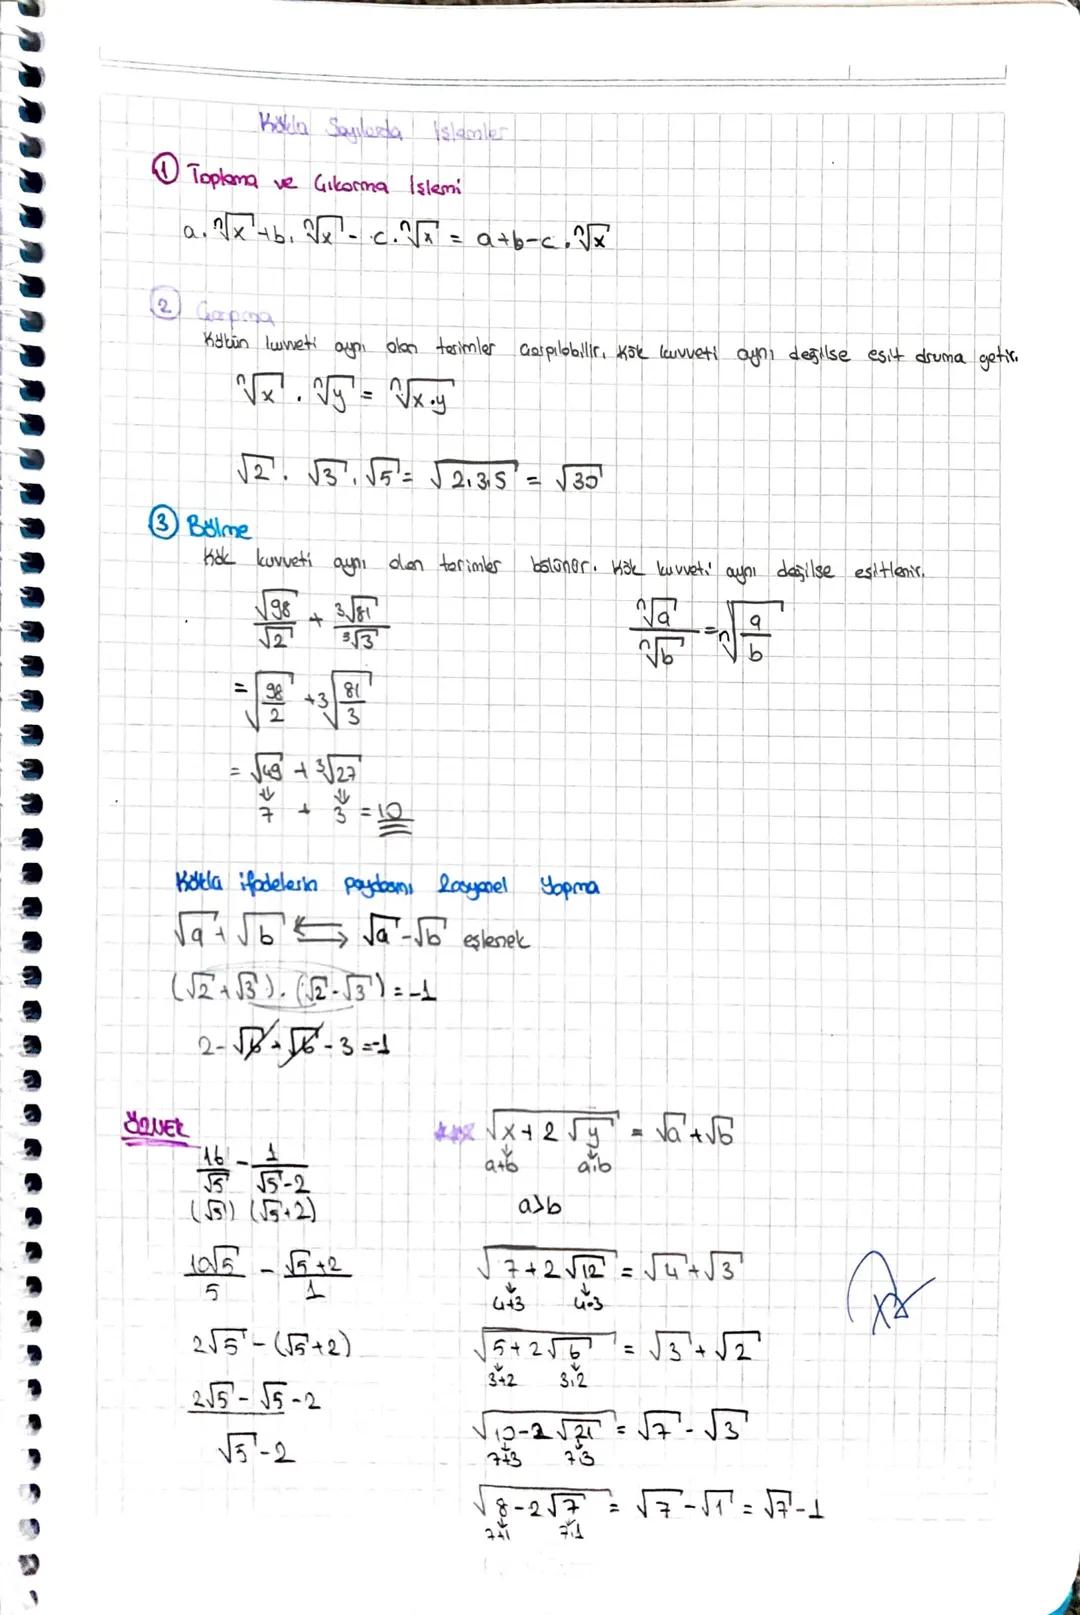 Köklü Sayılarda İşlemler
① Toplama ve Çıkarma İşlemi
a.ⁿ√x + b.ⁿ√x - c.ⁿ√x = a+b-c.ⁿ√x
② Çarpma
Kökün kuvveti aynı olan terimler çarpılabilir. Kök kuvveti aynı değilse eşit druma getir.
ⁿ√x . ⁿ√y = ⁿ√x.y
√2 . √3 . √5 = √2.3.5 = √30
③ Bölme
Kök kuvveti aynı olan terimler bölünür. Kök kuvveti aynı değilse eşitlenir.
√98/√2 + ³√81/³√3
ⁿ√a/ⁿ√b = ⁿ√a/b
= √98/2 + ³√81/3
= √49 + ³√27
7 + 3 = 10
Köklü ifadelerin paydasını Rasyonel Yapma
√a + √b ⇆ √a - √b eşlenek
(√2 + √3) . (√2 - √3) = -1
2 - √6 + √6 - 3 = -1
ÖRNEK
16/√5 - 1/√5-2
(√5) (√5+2)
10√5/5 - √5+2/1
2√5 - (√5+2)
2√5 - √5 - 2
√5 - 2
√x + 2√y = √a + √b
a+b a.b
a>b
√7+2√12 = √4 + √3
4+3 4.3
√5+2√6 = √3 + √2
3+2 3.2
√10-2√21 = √7 - √3
7+3 7.3
√8-2√7 = √7 - √1 = √7 - 1
7+1 7.1